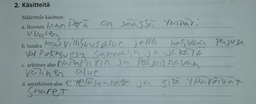 2. Käsitteitä
Määrittele käsitteet.
a. ikirouta maaperä on jäässä ympäri
vuoden
b. tundra kasvillisuusalue jolla kasvaa
varpukasveja sammalia ja jäkäliä
c. arktinen alue napapiirin ja pohjoisnavan
välinen alue
d. antarktinen alue etelämanner ja sitä ympäröivät
saaret